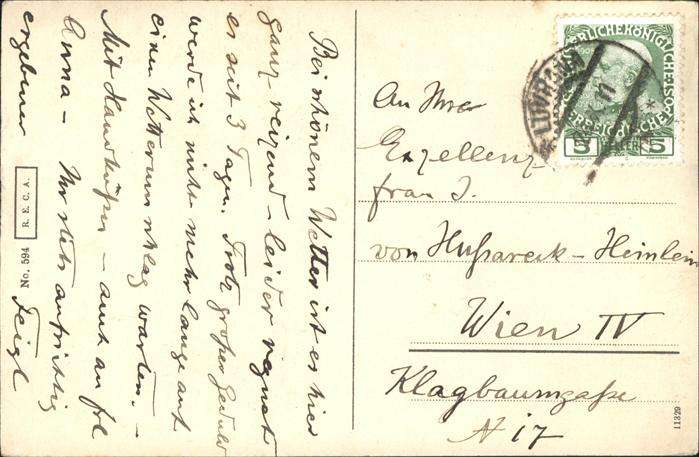 Bei schönem Wetter ist es hier
ganz reizend – leider regnet
es seit 3 Tagen. Trotz großer Geduld
werde ich nicht mehr lange auf
einen Wetterumschlag warten. –
Mit Handküßen – auch an Frl
Anna – Ihr stets aufrichtig
ergebener
Feigl
No. 594
R. E. C. A.
LOVRANA
5
5
An Ihre
Exzellenz
frau J.
von Hußarek – Heinlein
Wien IV
Klagbaumgaße
N 17
11329